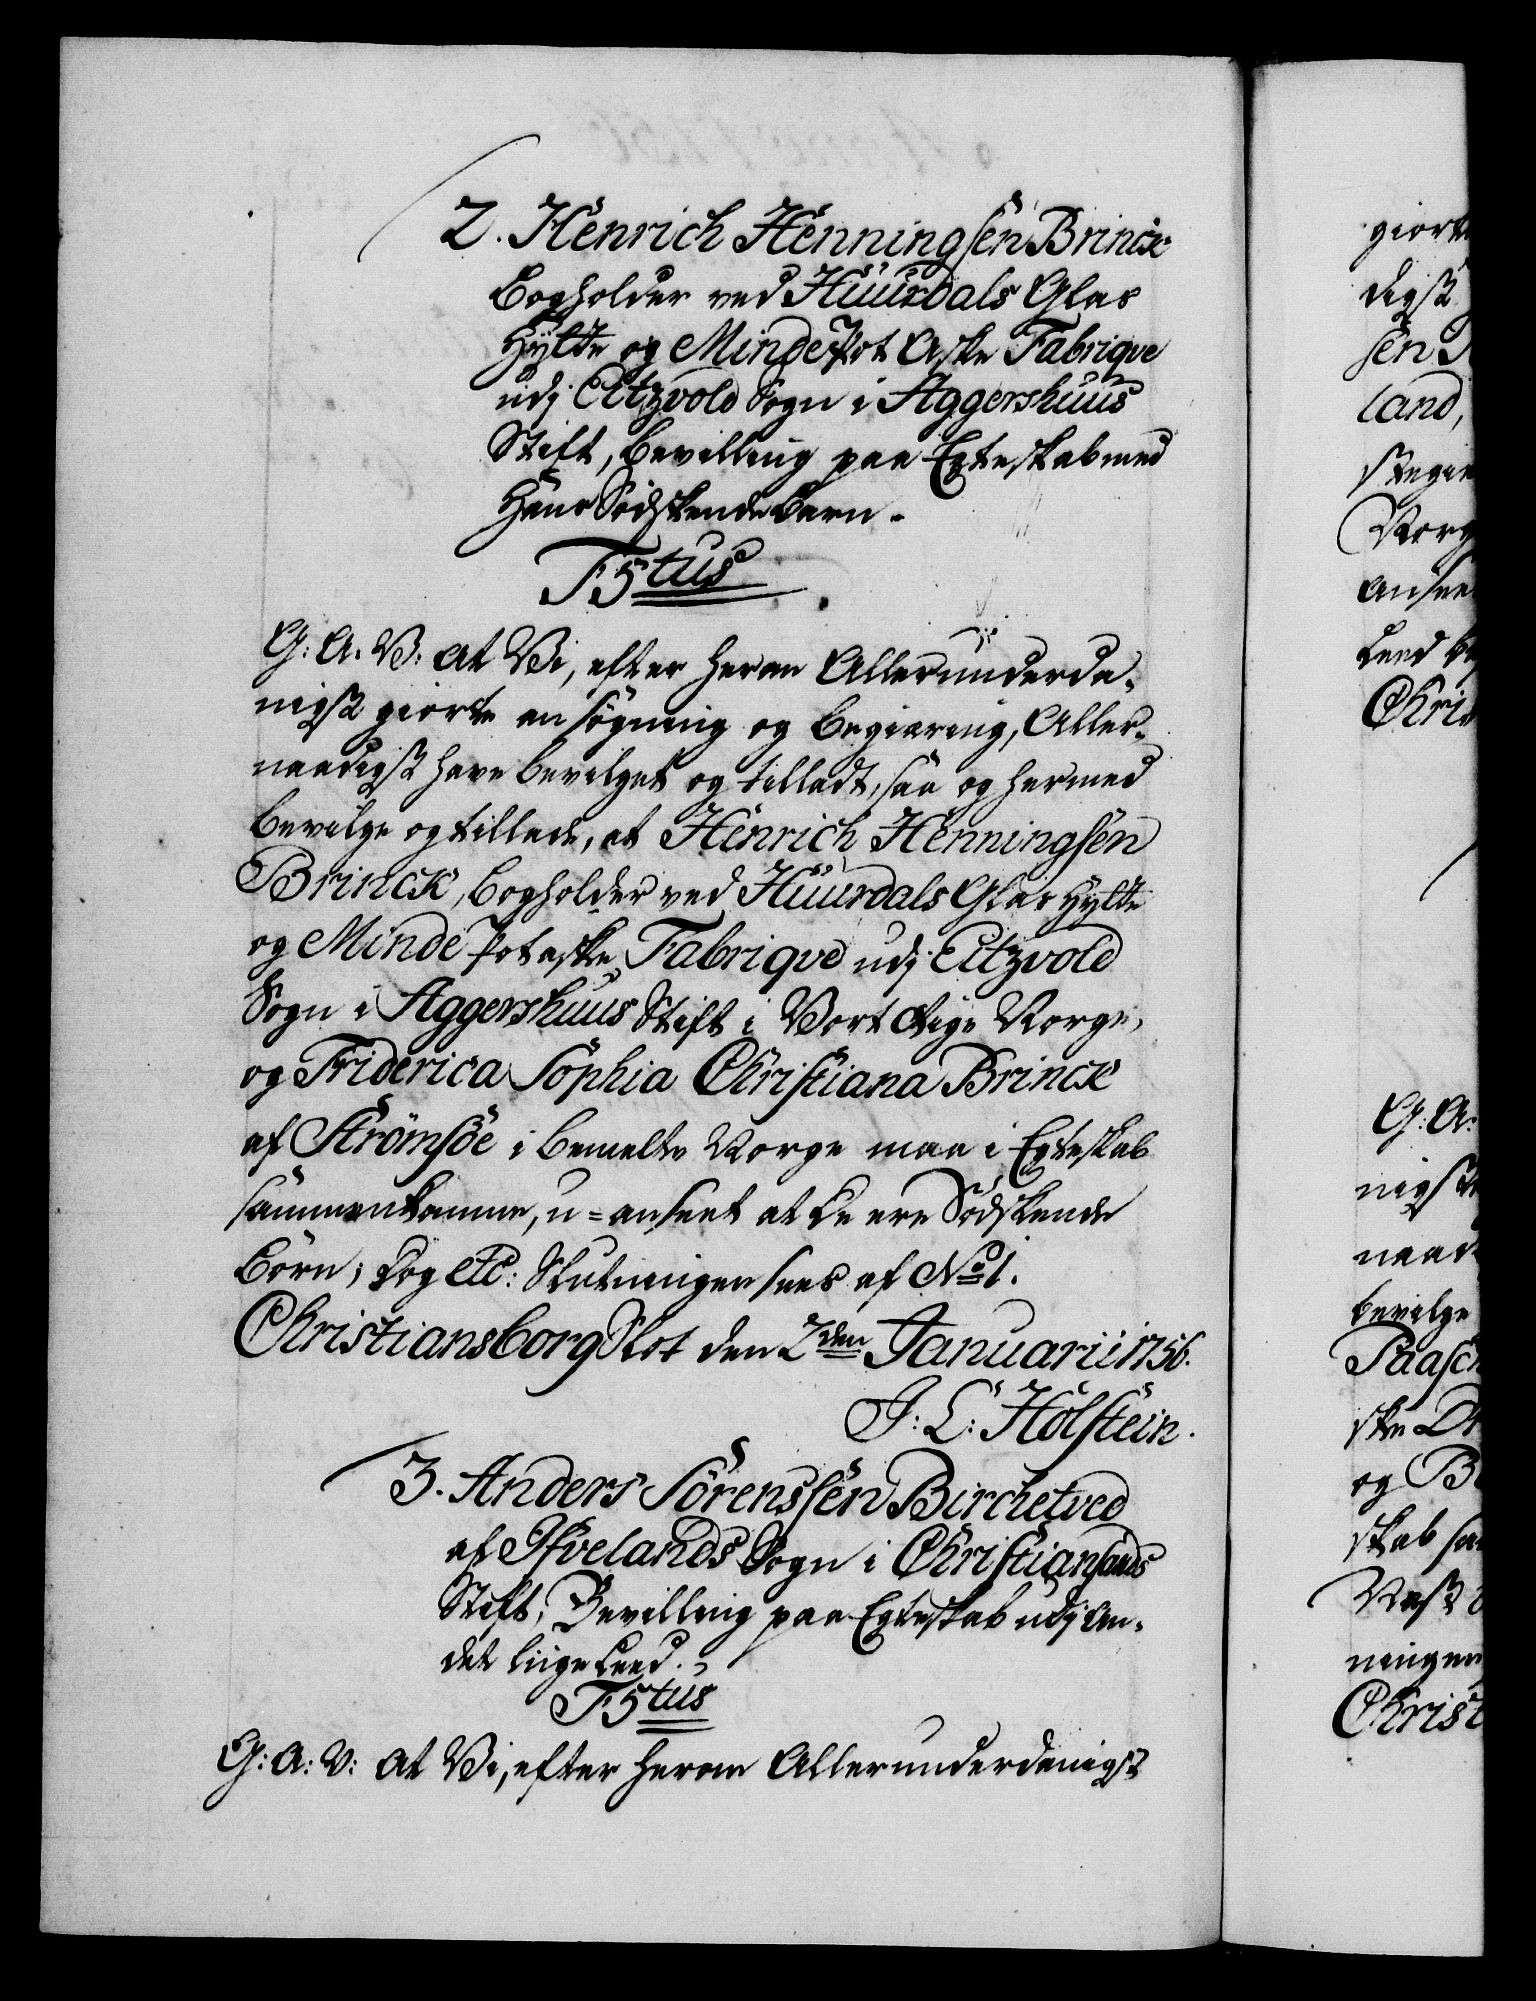 2. Henrich Henningsen Brinck
Bogholder ved Huurdals Glas
Hytte og Minde Pot Aske Fabriqve
udj Eitzvold Sogn i Aggershuus
Stift, bevilling paa Egteskab med
Hans Södskende Barn.
F5tus
G: A. V: at Vi, efter herom Allerunderda-
nigst giorte ansögning og begiæring, Aller-
naadigst have bevilget og tilladt, saa og hermed
bevilge og tillade, at Henrich Henningsen
Brinck, bogholder ved Huurdals Glas Hytte
og Minde Potaske Fabriqve udj Eitzvold
Sogn i Aggershuus Stift i Vort Rige Norge,
og Friderica Sophia Christiana Brinck
af Strömsöe i bemelte Norge maa i Egteskab
sammenkomme, u=anseet at de ere Södskende
Börn; dog etc: Slutningen sees af No 1.
Christiansborg Slot den 2den Januarii 1756.
J: L: Holstein.
3. Anders Sörenssen Birchetved
af Ifvelands Sogn i Christiansands
Stift, Bevilling paa Egteskab udj an-
det liige Leed.
F5tus
G: A: V: at Vi, efter herom Allerunderdanigst
giort
digst
sen
land,
Norg
ansee
Leed
Chri
G: A:
nigst
naad
bevilge
Paasch
ske
og B
skab sa
ningen
Christ